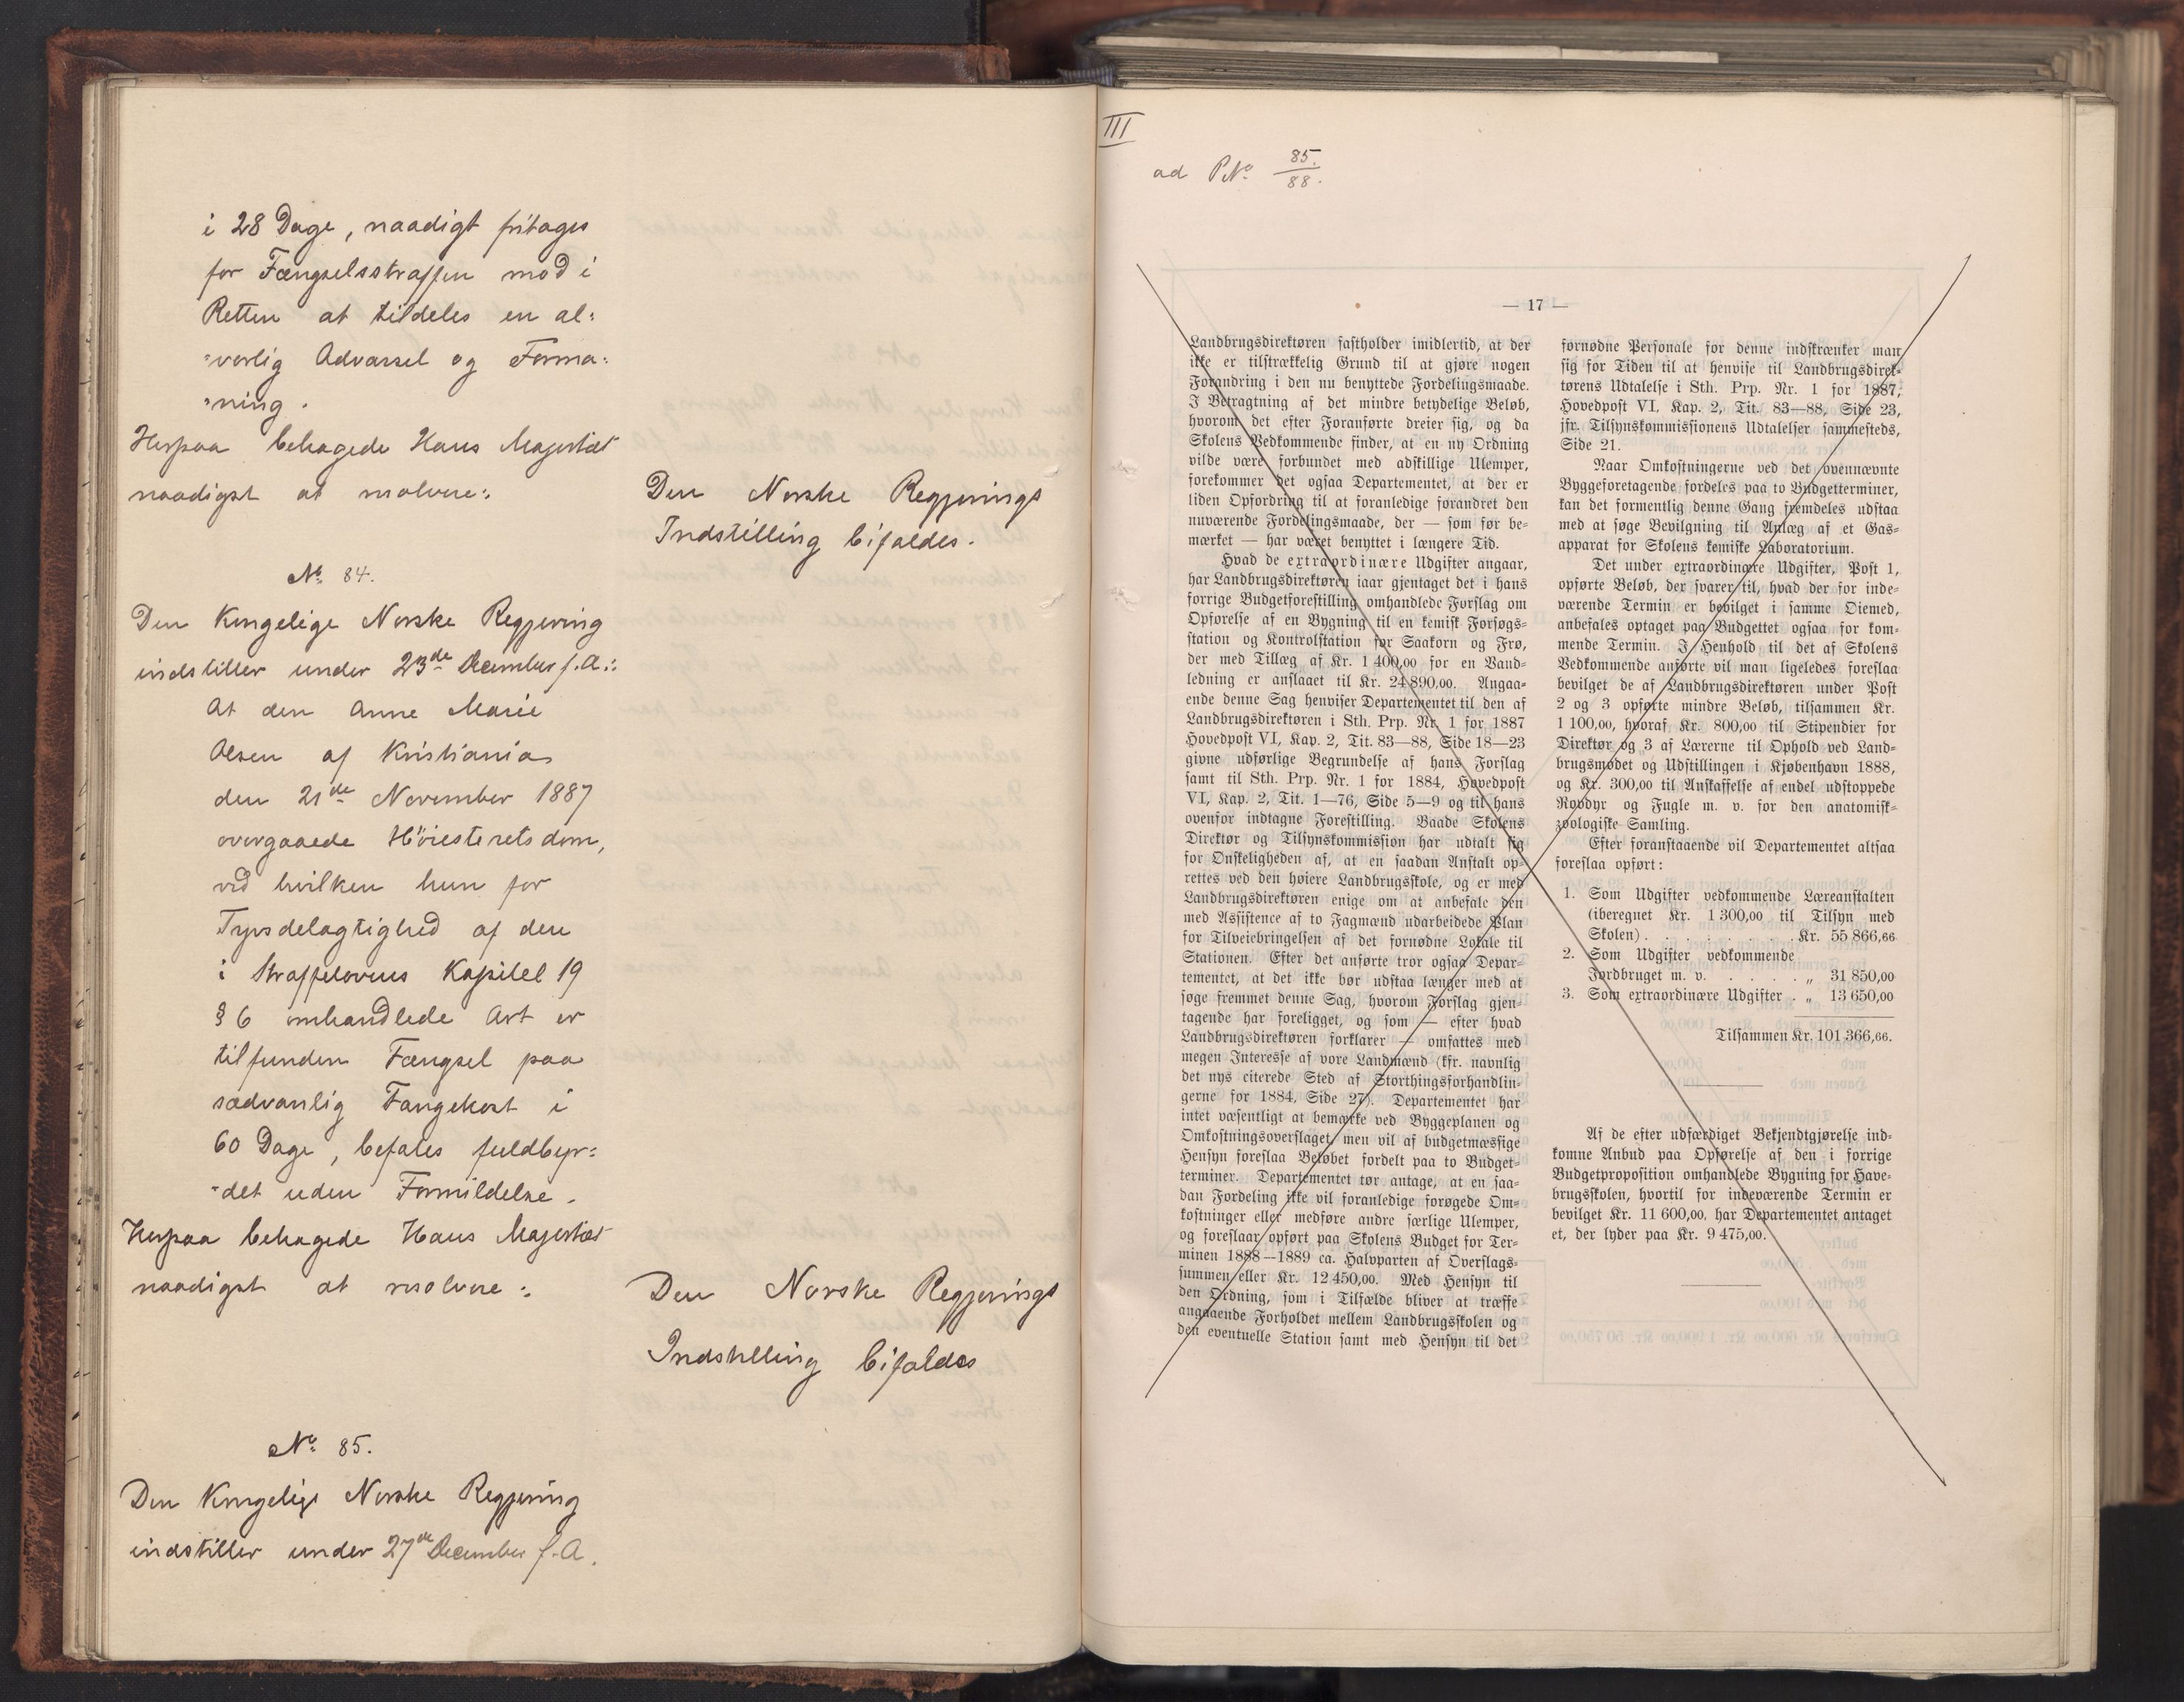 i 28 Dage, naadigst fritages
for Fængselsstraffen mod i
Retten at tildeles en al=
=vorlig Advarsel og Forma=
=ning.
Herpaa behagede Hans Majestæt
naadigst at resolvere:
Den Norske Regjerings
Indstilling bifaldes.
No. 84.
Den Kongelige Norske Regjering
indstiller under 23de December f.A.:
At den Anne Marie
Olsen af Kristiania
den 21de November 1887
overgaaede Høiesteretsdom,
ved hvilken hun for
Tyvsdelagtighed af den
i Straffelovens Kapitel 19
§ 6 omhandlede Art er
tilfunden Fængsel paa
sædvanlig Fangekost i
60 Dage, befales fuldbyr=
=det uden Formildelse.
Herpaa behagede Hans Majestæt
naadigst at resolvere:
Den Norske Regjerings
Indstilling bifaldes
No. 85.
Den Kongelige Norske Regjering
indstiller under 27de December f.A.
III
ad PNo. 85./88.
— 17 —
Landbrugsdirektøren fastholder imidlertid, at der
ikke er tilstrækkelig Grund til at gjøre nogen
Forandring i den nu benyttede Fordelingsmaade.
I Betragtning af det mindre betydelige Beløb,
hvorom det efter Foranførte dreier sig, og da
Skolens Vedkommende finder, at en ny Ordning
vilde være forbundet med adskillige Ulemper,
forekommer det ogsaa Departementet, at der er
liden Opfordring til at foranledige forandret den
nuværende Fordelingsmaade, der — som før be-
mærket — har været benyttet i længere Tid.
Hvad de extraordinære Udgifter angaar,
har Landbrugsdirektøren iaar gjentaget det i hans
forrige Budgetforestilling omhandlede Forslag om
Opførelse af en Bygning til en kemisk Forsøgs-
station og Kontrolstation for Saakorn og Frø,
der med Tillæg af Kr. 1 400,00 for en Vand-
ledning er anslaaet til Kr. 24 890,00. Angaa-
ende denne Sag henviser Departementet til den af
Landbrugsdirektøren i Sth. Prp. Nr. 1 for 1887
Hovedpost VI, Kap. 2, Tit. 83—88, Side 18—23
givne udførlige Begrundelse af hans Forslag
samt til Sth. Prp. Nr. 1 for 1884, Hovedpost
VI, Kap. 2, Tit. 1—76, Side 5—9 og til hans
ovenfor indtagne Forestilling. Baade Skolens
Direktør og Tilsynskommission har udtalt sig
for Ønskeligheden af, at en saadan Anstalt op-
rettes ved den høiere Landbrugsskole, og er med
Landbrugsdirektøren enige om at anbefale den
med Assistence af to Fagmænd udarbeidede Plan
for Tilveiebringelsen af det fornødne Lokale til
Stationen. Efter det anførte tror ogsaa Depar-
tementet, at det ikke bør udstaa længer med at
søge fremmet denne Sag, hvorom Forslag gjen-
tagende har foreligget, og som — efter hvad
Landbrugsdirektøren forklarer — omfattes med
megen Interesse af vore Landmænd (kfr. navnlig
det nys citerede Sted af Storthingsforhandlin-
gerne for 1884, Side 27). Departementet har
intet væsentligt at bemærke ved Byggeplanen og
Omkostningsoverslaget, men vil af budgetmæssige
Hensyn foreslaa Beløbet fordelt paa to Budget-
terminer. Departementet tør antage, at en saa-
dan Fordeling ikke vil foranledige forøgede Om-
kostninger eller medføre andre særlige Ulemper,
og foreslaar opført paa Skolens Budget for Ter-
minen 1888—1889 ca. Halvparten af Overslags-
summen eller Kr. 12 450,00. Med Hensyn til
den Ordning, som i Tilfælde bliver at træffe
angaaende Forholdet mellem Landbrugsskolen og
den eventuelle Station samt med Hensyn til det
fornødne Personale for denne indskrænker man
sig for Tiden til at henvise til Landbrugsdirek-
tørens Udtalelse i Sth. Prp. Nr. 1 for 1887,
Hovedpost VI, Kap. 2, Tit. 83—88, Side 23,
jfr. Tilsynskommissionens Udtalelser sammesteds,
Side 21.
Naar Omkostningerne ved det ovennævnte
Byggeforetagende fordeles paa to Budgetterminer,
kan det formentlig denne Gang fremdeles udstaa
med at søge Bevilgning til Anlæg af et Gas-
apparat for Skolens kemiske Laboratorium.
Det under extraordinære Udgifter, Post 1,
opførte Beløb, der svarer til, hvad der for inde-
værende Termin er bevilget i samme Øiemed,
anbefales optaget paa Budgettet ogsaa for kom-
mende Termin. I Henhold til det af Skolens
Vedkommende anførte vil man ligeledes foreslaa
bevilget de af Landbrugsdirektøren under Post
2 og 3 opførte mindre Beløb, tilsammen Kr.
1 100,00, hvoraf Kr. 800,00 til Stipendier for
Direktør og 3 af Lærerne til Ophold ved Land-
brugsmødet og Udstillingen i Kjøbenhavn 1888,
og Kr. 300,00 til Anskaffelse af endel udstoppede
Rovdyr og Fugle m. v. for den anatomisk-
zoologiske Samling.
Efter foranstaaende vil Departementet altsaa
foreslaa opført:
1. Som Udgifter vedkommende Læreanstalten
(iberegnet Kr. 1 300,00 til Tilsyn med
Skolen) . . . . . . . Kr. 55 866,66
2. Som Udgifter vedkommende
Jordbruget m. v. . . . . „ 31 850,00
3. Som extraordinære Udgifter . „ 13 650,00
Tilsammen Kr. 101 366,66.
Af de efter udfærdiget Bekjendtgjørelse ind-
komne Anbud paa Opførelse af den i forrige
Budgetproposition omhandlede Bygning for Have-
brugsskolen, hvortil for indeværende Termin er
bevilget Kr. 11 600,00, har Departementet antaget
et, der lyder paa Kr. 9 475,00.